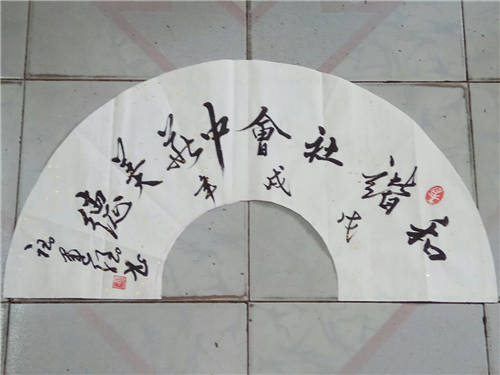 和諧社會中华美德
戊戌年